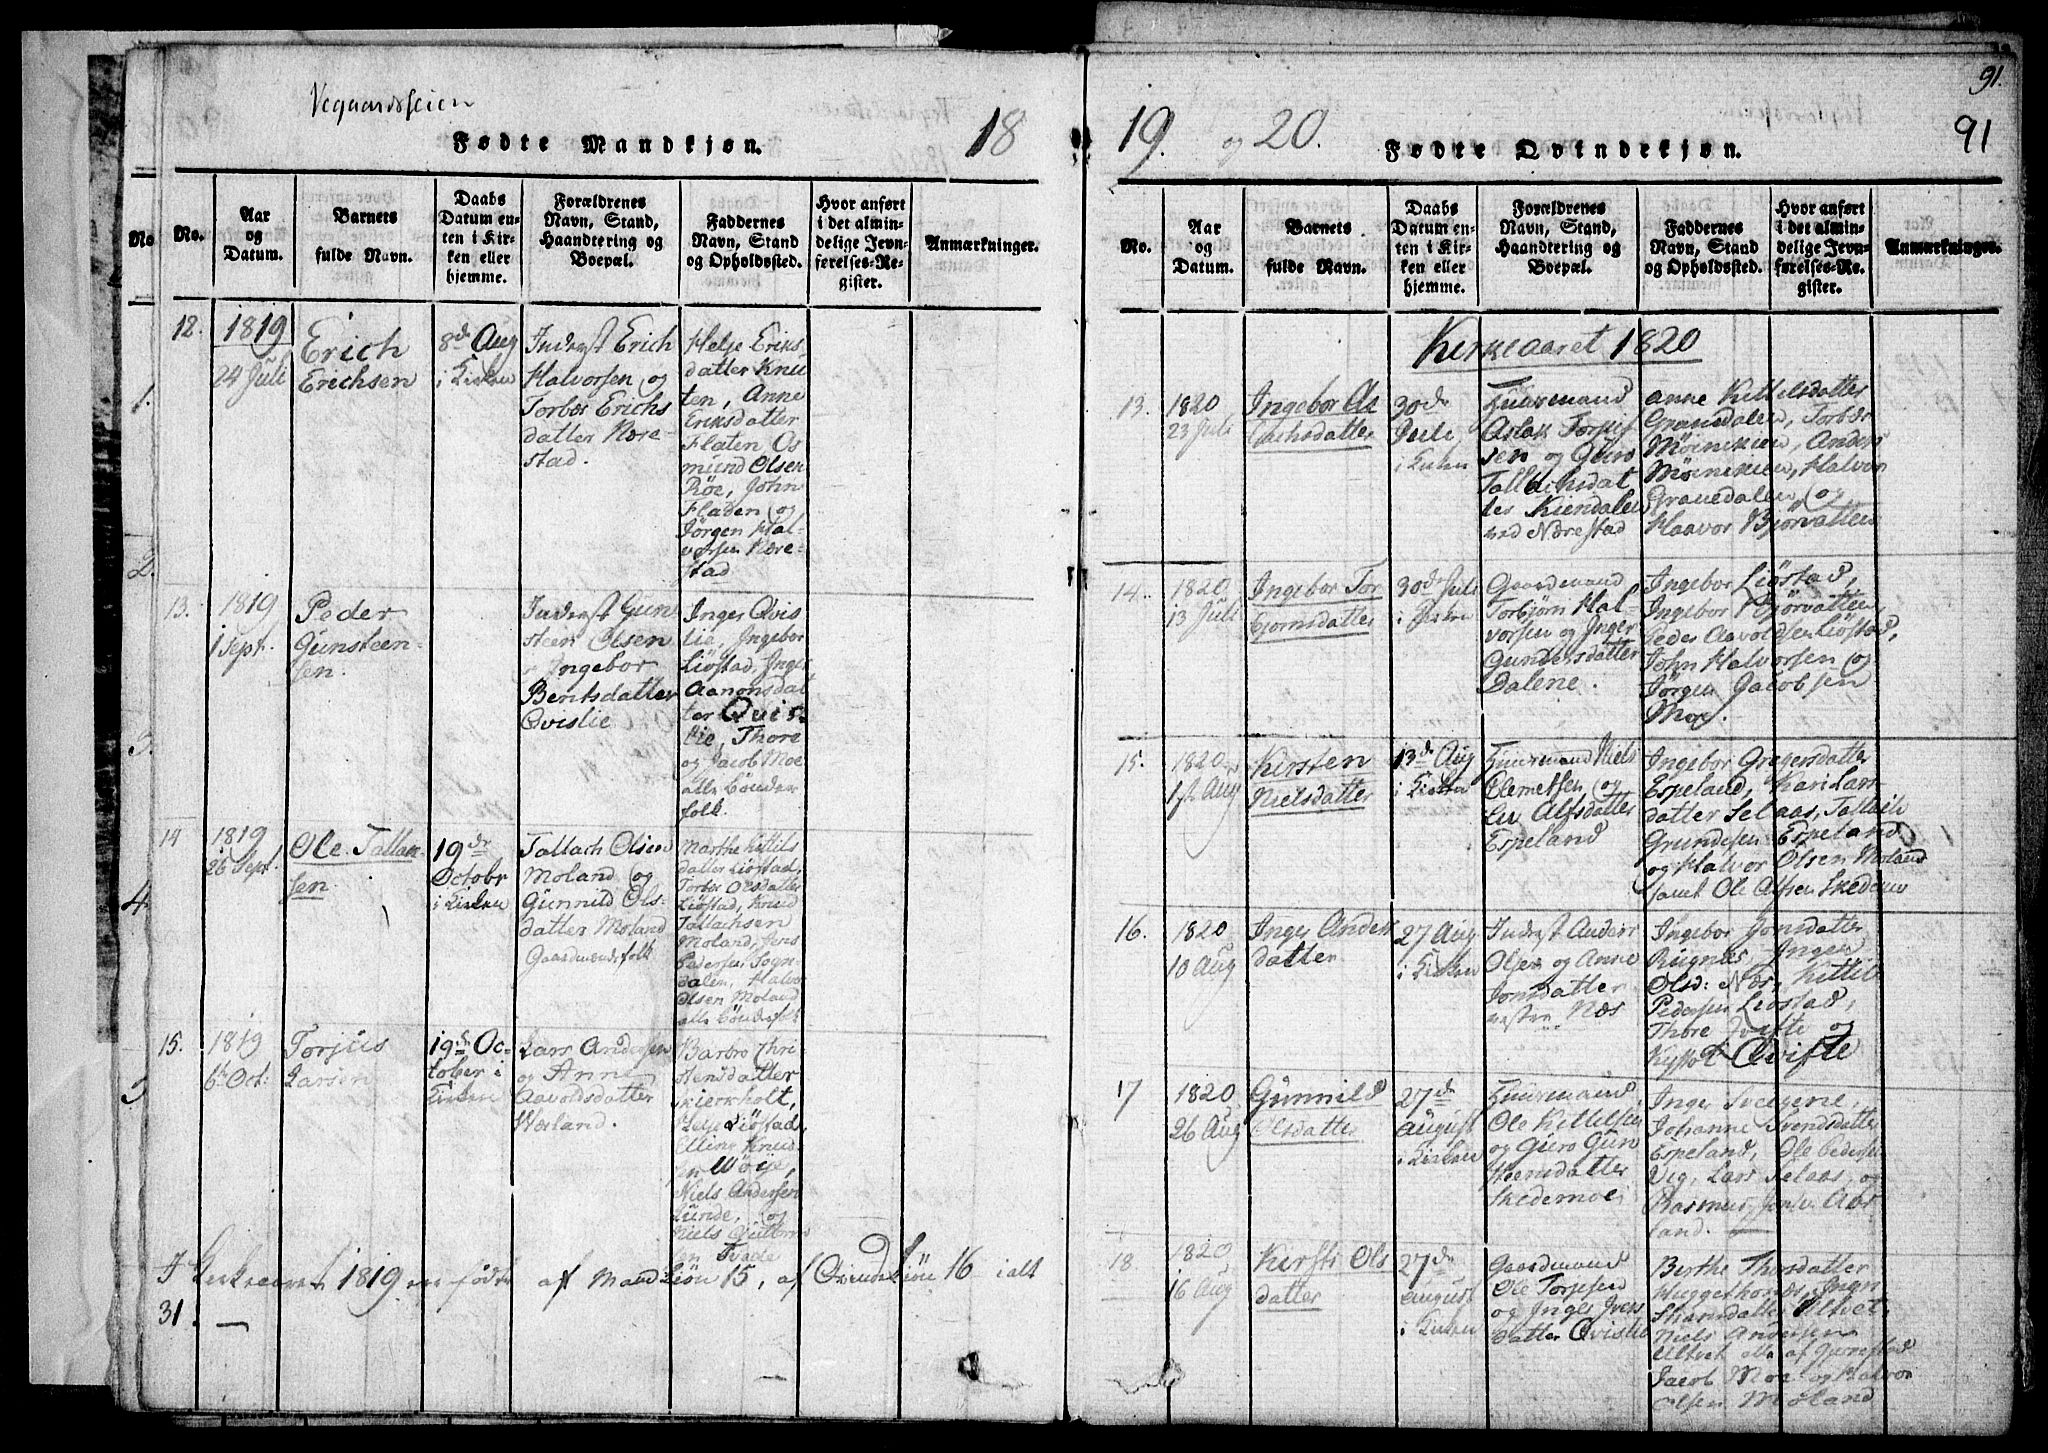 Vegaardsseien
Fødte Mandkjøn.
18
No.
No.
Aar
og
Datum.
Barnets
fulde Navn.
Daabs
Datum en-
ten i Kir-
ken eller
hjemme.
Forældrenes
Navn, Stand,
Haandtering og
Boepæl.
Faddernes
Navn, Stand
og Opholdssted.
Hvor anført
i det almin-
delige Jevn-
førelses-Re-
gister.
Anmærkninger.
12.
1819
24 Juli
Erich
Erichsen
8de Aug
i Kirken
Inderst Erich
Halvorsen og
Torbor Erichs
datter Nære-
stad.
Helje Eriks-
datter Knu
ten, Anne
Eriksdatter
Flaten Os
mund Olsen
Røe, John
Fladen og
Jörgen Hal-
vorsen Nære-
stad
13.
1819
1 Sept.
Peder
Gunsteen-
sen.
Inderst Gun
steen Olsen
Ingebor
Bentsdatter
Qvislie
Inger Qvis
lie, Ingebor
Liøstad, Inger
Aanonsdat
ter Qvis-
lie, Thore
og Jacob Moe
alle Bönder
folk.
14
1819
26 Sept.
Ole Tallak-
sen.
19de
Octobr
i Kirken
Tallach Olsen
Moland og
Gunnild Ols-
datter Moland
Gaardmandsfolk
Marthe Kittils
datter Liøstad,
Torbor Olsdatter
Liøstad, Knud
Tallachsen
Moland, Jens
Pedersen Sogn-
dalen, Halvor
Olsen Moland
alle Böndefolk
15.
1819
6te Oct:
Torjus
Larsen
19de Oc-
tober i
Kirken
Lars Andersen
og Anne
Aavoldsdatter
Værland.
Barbro Chri-
stensdatter
Skierkholt,
Helje Liøstad,
Elling Knud-
sen Vöije,
Niels Andersen
Lunde, og
Niels Guttorms
sen Tvede
I Kirkeaaret 1819 ere födte af Mandkiön 15, af Qvindekiön 16 ialt
31.
1.
2.
3.
4.
5
19. og 20.
Fødte Qvindekjøn.
91.
91
No.
Aar
og
Datum.
Barnets
fulde Navn.
Daabs
Datum en-
ten i Kir-
ken eller
hjemme.
Forældrenes
Navn, Stand,
Haandtering og
Boepæl.
Faddernes
Navn, Stand
og Opholdssted.
Hvor anført
i det almin-
delige Jevn-
førelses-Re-
gister.
Anmærkninger.
Kirkeaaret 1820
13.
1820
23 Juli
Ingebor As
lachsdatter
30de
Juli
i Kirken
Huusmand
Aslak Torkil
sen og Guro
Tallachsdat
ter Kiendalen
ved Nærestad
Anne Kittelsdatter
Granedalen, Torbor
Möinekien, Anders
Möinekien, Halvor
Granedalen, og
Haavor Bjorvatten
14.
1820
13 Juli
Ingebor Tor
bjornsdatter
30de Juli
i Kirken
Gaardmand
Torbjørn Hal-
vorsen og Inger
Gundersdatter
Dalene.
Ingebor Liøstad,
Ingebor Bjørvatten,
Peder Aavoldsen Liøstad,
John Halvorsen og
Jørgen Jacobsen
Moe.
15.
1820
1st Aug
Kirsten
Nielsdatter
13de Aug
i Kirken
Huusmand Niels
Clemetsen og
Liv Alfsdatter
Espeland
Ingebor Gregersdatter
Espeland, Kari Lars
datter Selaas, Talleih
Grundesen Espeland
og Halvor Olsen Moland
samt Ole Alfsen Skedemo
16.
1820
10 Aug
Inger Anders
datter
27 Aug
i Kirken
Inderst Anders
Olsen og Anne
Jonsdatter
vestre Næs
Ingebor Jonsdatter
Rugnes, Inger
Olsd: Næs, Kittil
Pedersen Liøstad,
Thore og
Qvifte
17
1820
26 Aug
Gunnild
Olsdatter
27de
August
i Kirken
Huusmand
Ole Kittelsen
og Guro Gun
steensdatter
Skedemoe
Inger Svelgene,
Johanne Svendsdatter
Espeland, Ole Pedersen
Vig, Lars Selaas, og
Rasmus Jensen Aas
land.
18
1820
16 Aug
Kirsti Ols
datter
27de
August
i Kirken
Gaardmand
Ole Torjesen
og Inger Ivers
datter Qvislie
Berthe Thorsdatter
Huggethordæs, Inger
datter Ultvet
Niels Andersen
Ultvet alle af Gjerrestad
Jacob Moe og Halvor
Olsen Moland